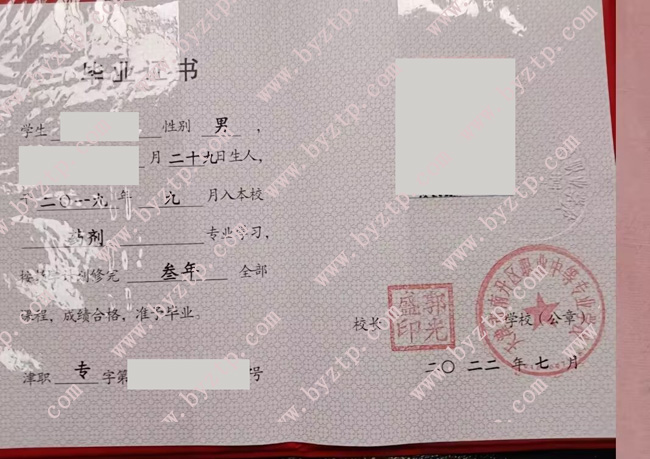 毕业证书
学生 性别 男 ，
月二十九日生人，
于二〇一九年九月入本校
药剂 专业学习，
修完 叁年 全部
课程，成绩合格，准予毕业。
津职 专 字第 号
校长
郭光盛印
学校（公章）
天津市南开区职业中等专业学校
二〇二二年七月
www.byztp.com